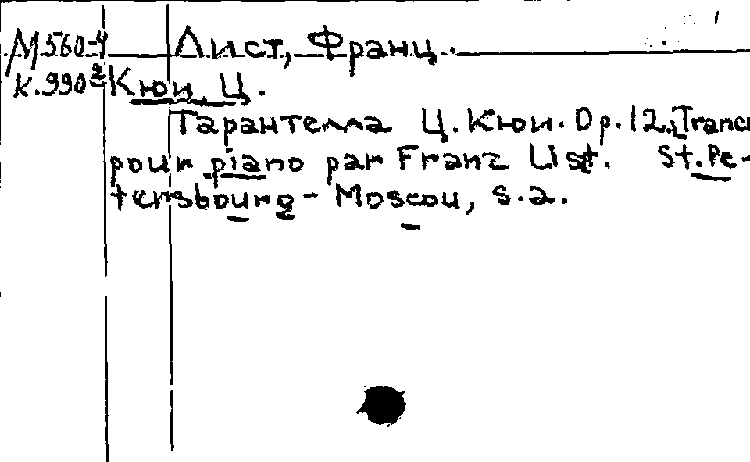 М560-4 Лист, Франц.
к.990² Кюи, Ц.
Тарантелла Ц. Кюи. Op. 12. Transc
pour piano par Franz List. St. Pe-
tersbourg - Moscou, s.a.